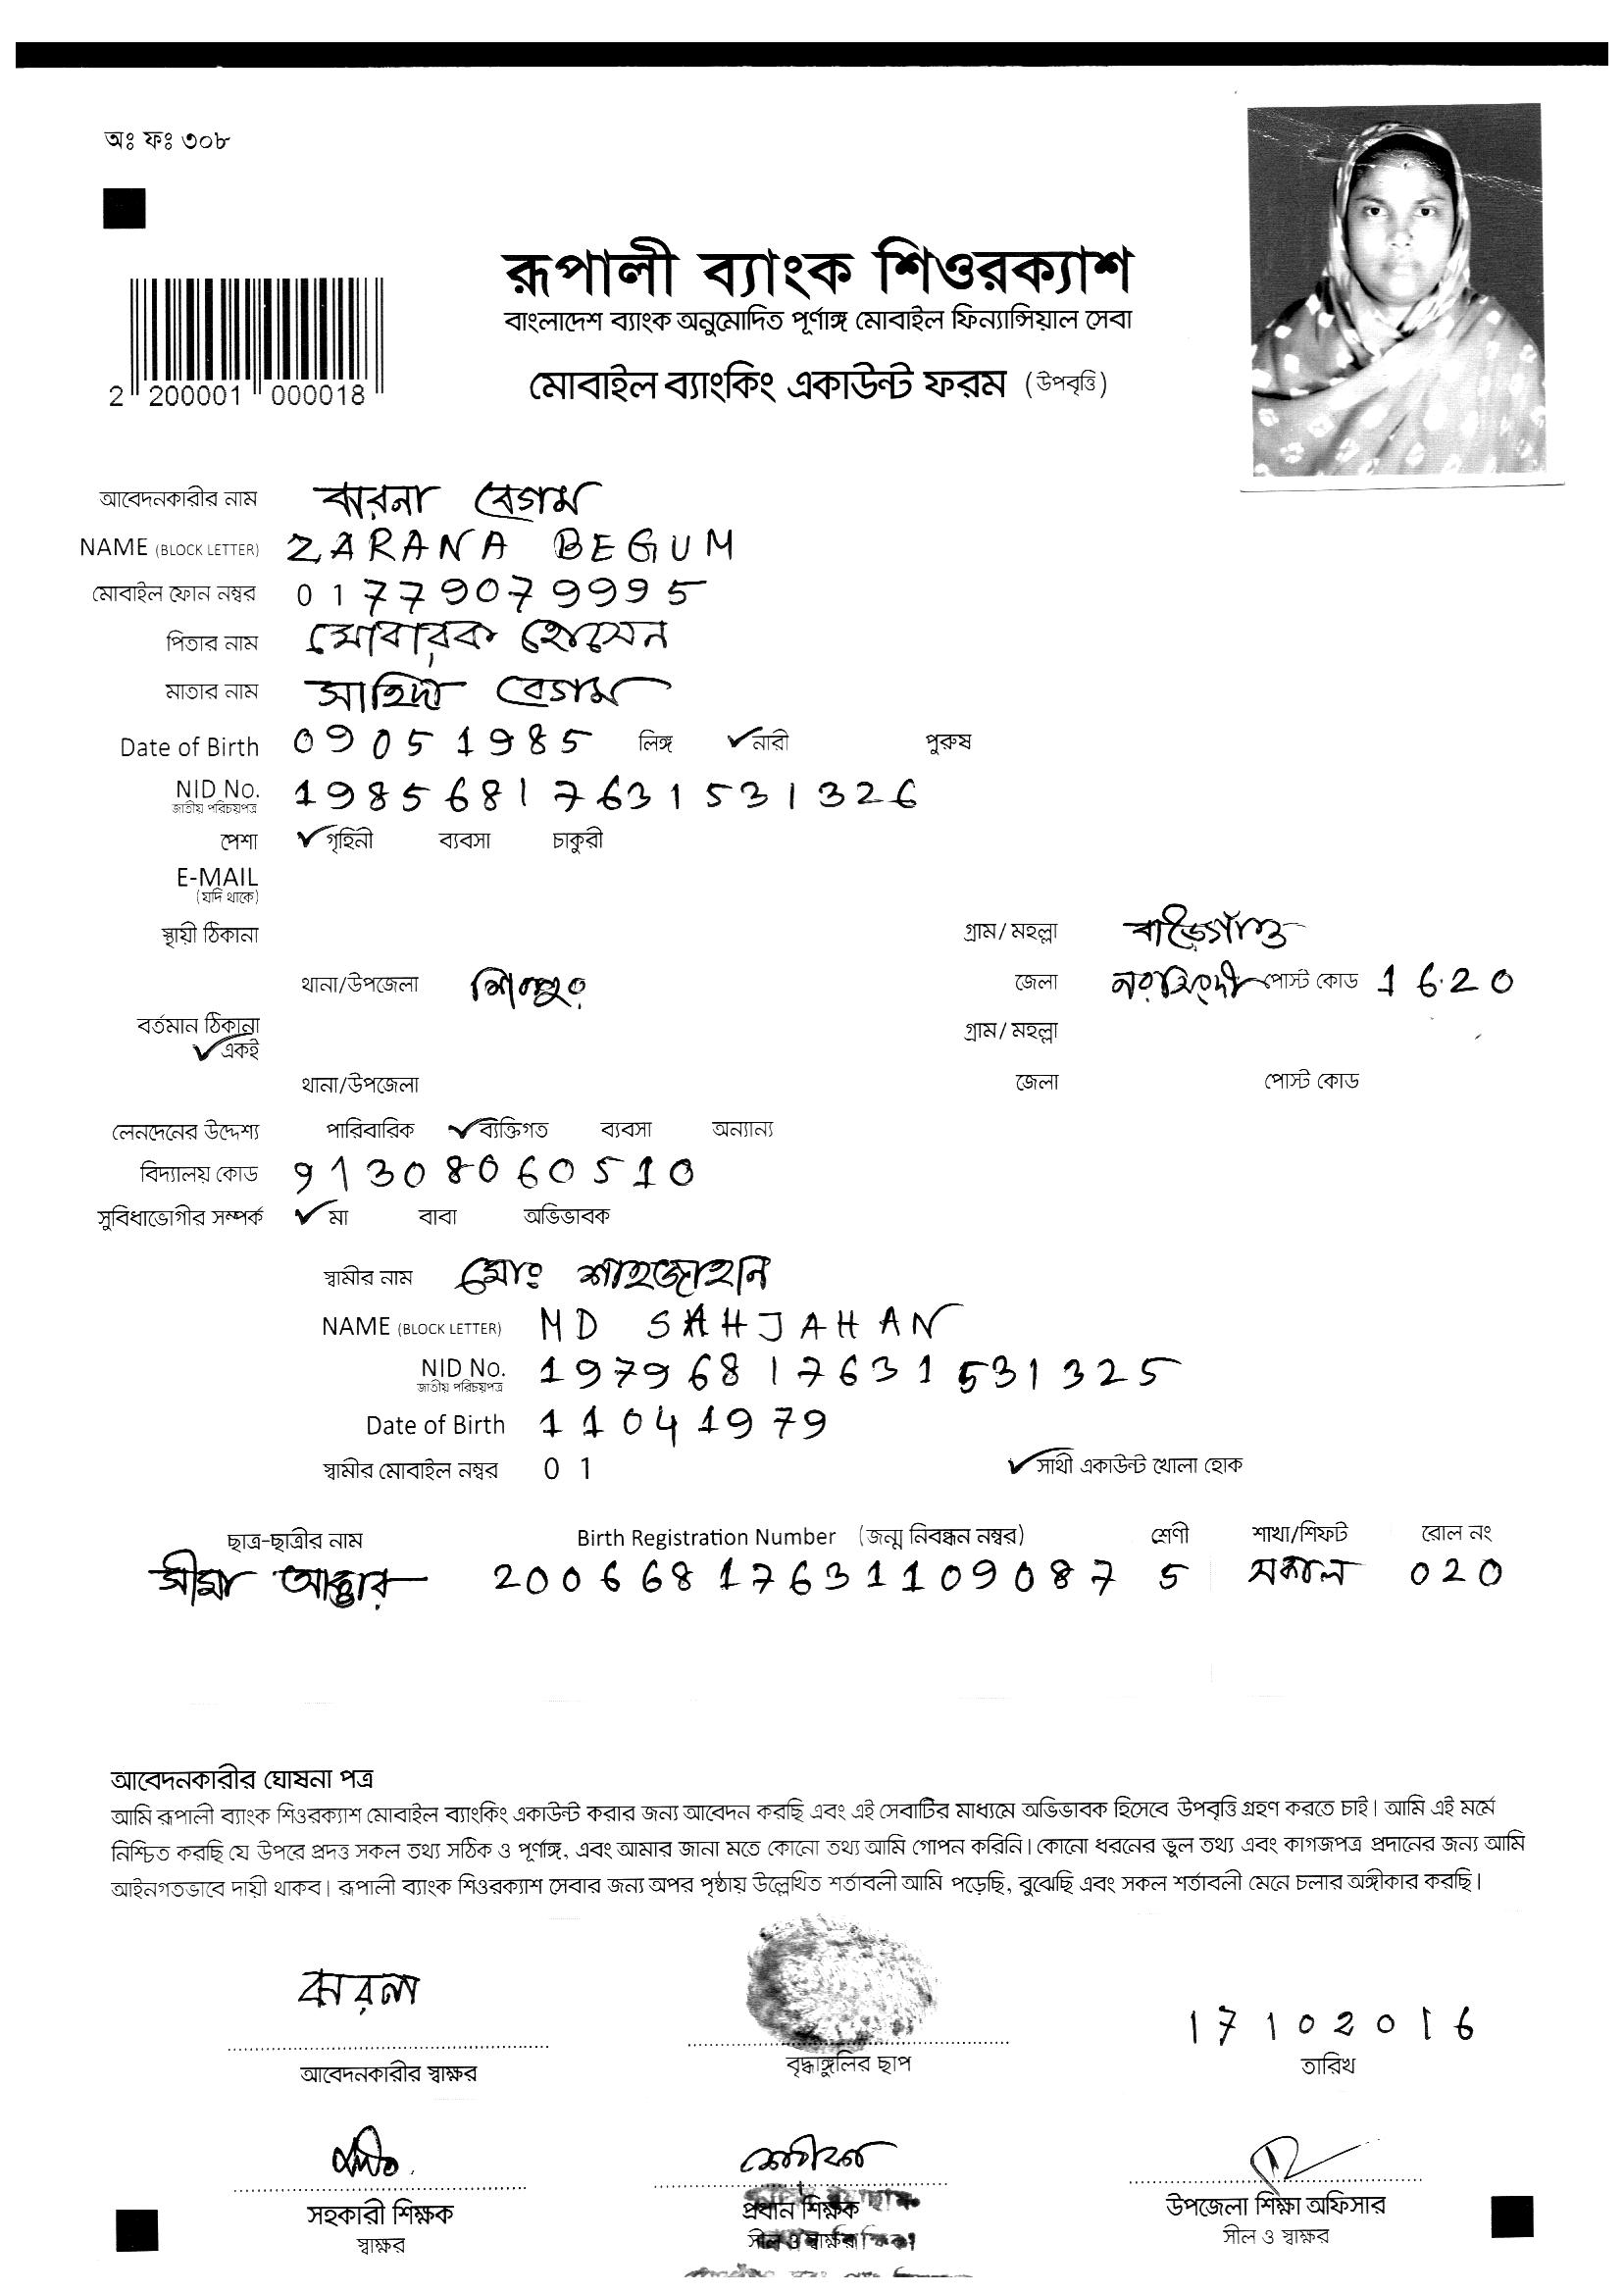 অঃ ফঃ ৩০৮
রূপালী ব্যাংক শিওরক্যাশ
বাংলাদেশ ব্যাংক অনুমোদিত পূর্ণাঙ্গ মোবাইল ফিন্যান্সিয়াল সেবা
2 200001 000018
মোবাইল ব্যাংকিং একাউন্ট ফরম (উপবৃত্তি)
আবেদনকারীর নাম ঝরনা বেগম
NAME (BLOCK LETTER) ZARANA BEGUM
মোবাইল ফোন নম্বর 01779079995
পিতার নাম মোবারক হোসেন
মাতার নাম সাহিদা বেগম
Date of Birth 09051985 লিঙ্গ ✓নারী পুরুষ
NID No. 19856817631531326
জাতীয় পরিচয়পত্র
পেশা ✓গৃহিনী ব্যবসা চাকুরী
E-MAIL
(যদি থাকে)
স্থায়ী ঠিকানা গ্রাম/ মহল্লা বাড়ৈগাঁও
থানা/উপজেলা শিবপুর জেলা নরসিংদী পোস্ট কোড 1620
বর্তমান ঠিকানা গ্রাম/ মহল্লা
✓একই
থানা/উপজেলা জেলা পোস্ট কোড
লেনদেনের উদ্দেশ্য পারিবারিক ✓ব্যক্তিগত ব্যবসা অন্যান্য
বিদ্যালয় কোড 91308060510
সুবিধাভোগীর সম্পর্ক ✓মা বাবা অভিভাবক
স্বামীর নাম মোঃ শাহজাহান
NAME (BLOCK LETTER) MD SAHJAHAN
NID No. 19796817631531325
জাতীয় পরিচয়পত্র
Date of Birth 11041979
স্বামীর মোবাইল নম্বর 01 ✓সাথী একাউন্ট খোলা হোক
ছাত্র-ছাত্রীর নাম Birth Registration Number (জন্ম নিবন্ধন নম্বর) শ্রেণী শাখা/শিফট রোল নং
সীমা আক্তার 20066817631109087 5 সকাল 020
আবেদনকারীর ঘোষনা পত্র
আমি রূপালী ব্যাংক শিওরক্যাশ মোবাইল ব্যাংকিং একাউন্ট করার জন্য আবেদন করছি এবং এই সেবাটির মাধ্যমে অভিভাবক হিসেবে উপবৃত্তি গ্রহণ করতে চাই। আমি এই মর্মে
নিশ্চিত করছি যে উপরে প্রদত্ত সকল তথ্য সঠিক ও পূর্ণাঙ্গ, এবং আমার জানা মতে কোনো তথ্য আমি গোপন করিনি। কোনো ধরনের ভুল তথ্য এবং কাগজপত্র প্রদানের জন্য আমি
আইনগতভাবে দায়ী থাকব। রূপালী ব্যাংক শিওরক্যাশ সেবার জন্য অপর পৃষ্ঠায় উল্লেখিত শর্তাবলী আমি পড়েছি, বুঝেছি এবং সকল শর্তাবলী মেনে চলার অঙ্গীকার করছি।
ঝরনা 17102016
আবেদনকারীর স্বাক্ষর বৃদ্ধাঙ্গুলির ছাপ তারিখ
সহকারী শিক্ষক প্রধান শিক্ষক উপজেলা শিক্ষা অফিসার
স্বাক্ষর সীল ও স্বাক্ষর সীল ও স্বাক্ষর